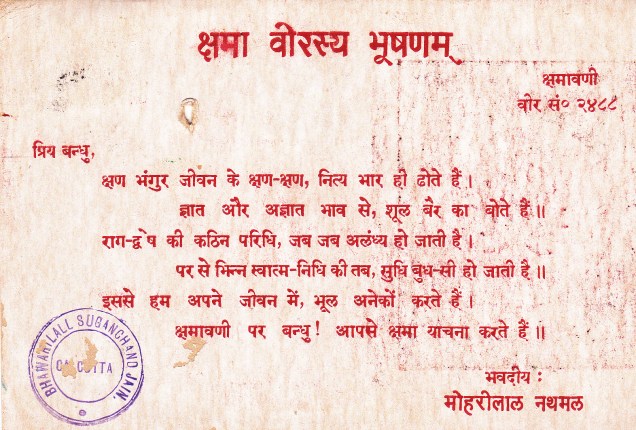 क्षमा वीरस्य भूषणम्
क्षमावणी
वीर सं० २४८८
प्रिय बन्धु,
क्षण भंगुर जीवन के क्षण-क्षण, नित्य भार ही ढोते हैं ।
ज्ञात और अज्ञात भाव से, शूल बैर का बोते हैं ॥
राग-द्वेष की कठिन परिधि, जब जब अलंध्य हो जाती है ।
पर से भिन्न स्वात्म-निधि की तब, सुधि बुध-सी हो जाती है ॥
इससे हम अपने जीवन में, भूल अनेकों करते हैं ।
क्षमावणी पर बन्धु ! आपसे क्षमा याचना करते हैं ॥
भवदीय :
मोहरीलाल नथमल
BHAWARILALL SUGANCHAND JAIN.
CALCUTTA